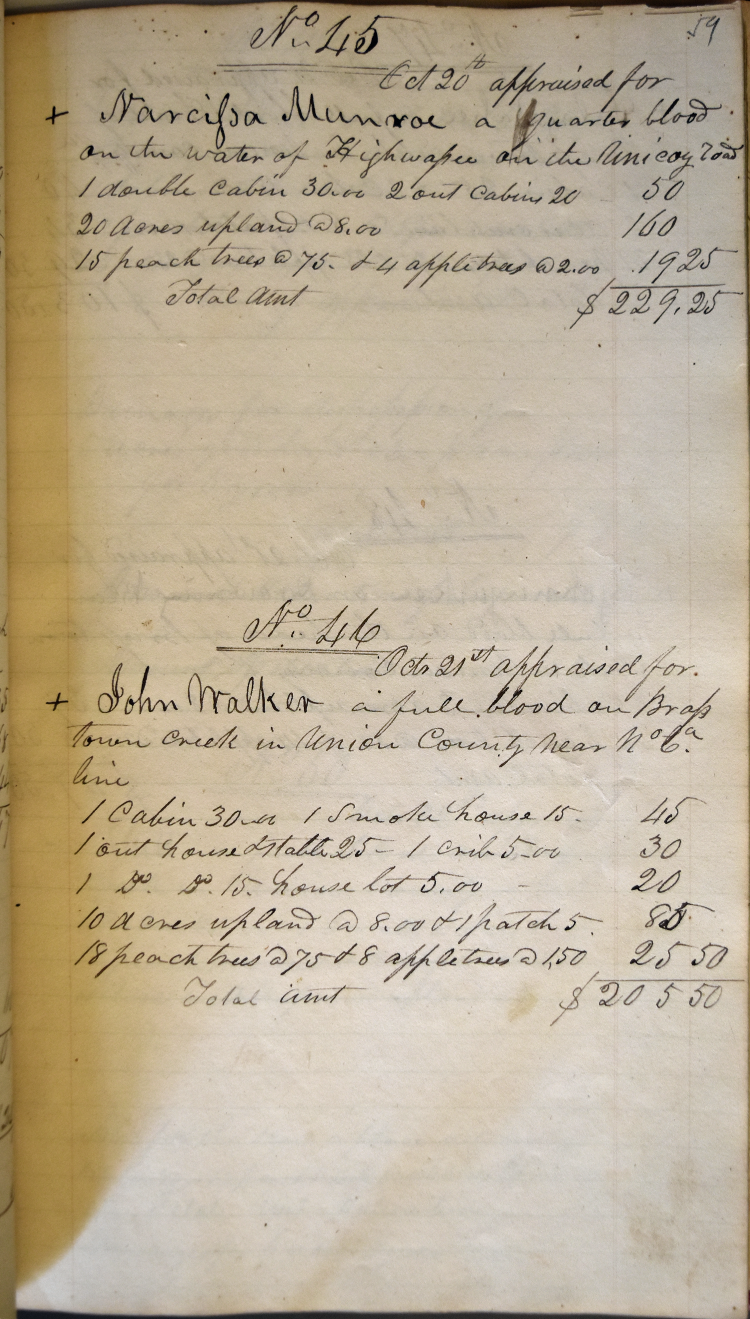 59
No. 45
Oct 20th appraised for
+ Narcissa Munroe a quarter blood
on the water of Highwassee on the Unicoy road
1 double Cabin 30.00 2 out Cabins 20 50
20 Acres upland @ 8.00 160
15 peach trees @ 75. & 4 apple trees @ 2.00 19 25
Total Amt $229.25
No. 46
Octr 21st appraised for.
+ John Walker a full blood on Brass
town Creek in Union County near No Ca.
line
1 Cabin 30.00 1 Smoke house 15. 45
1 out house & stable 25 - 1 crib 5.00 30
1 Do. Do. 15. house lot 5.00 - 20
10 Acres upland @ 8.00 & 1 patch 5. 85
18 peach trees @ 75 & 8 apple trees @ 1,50 25 50
Total Amt $205 50